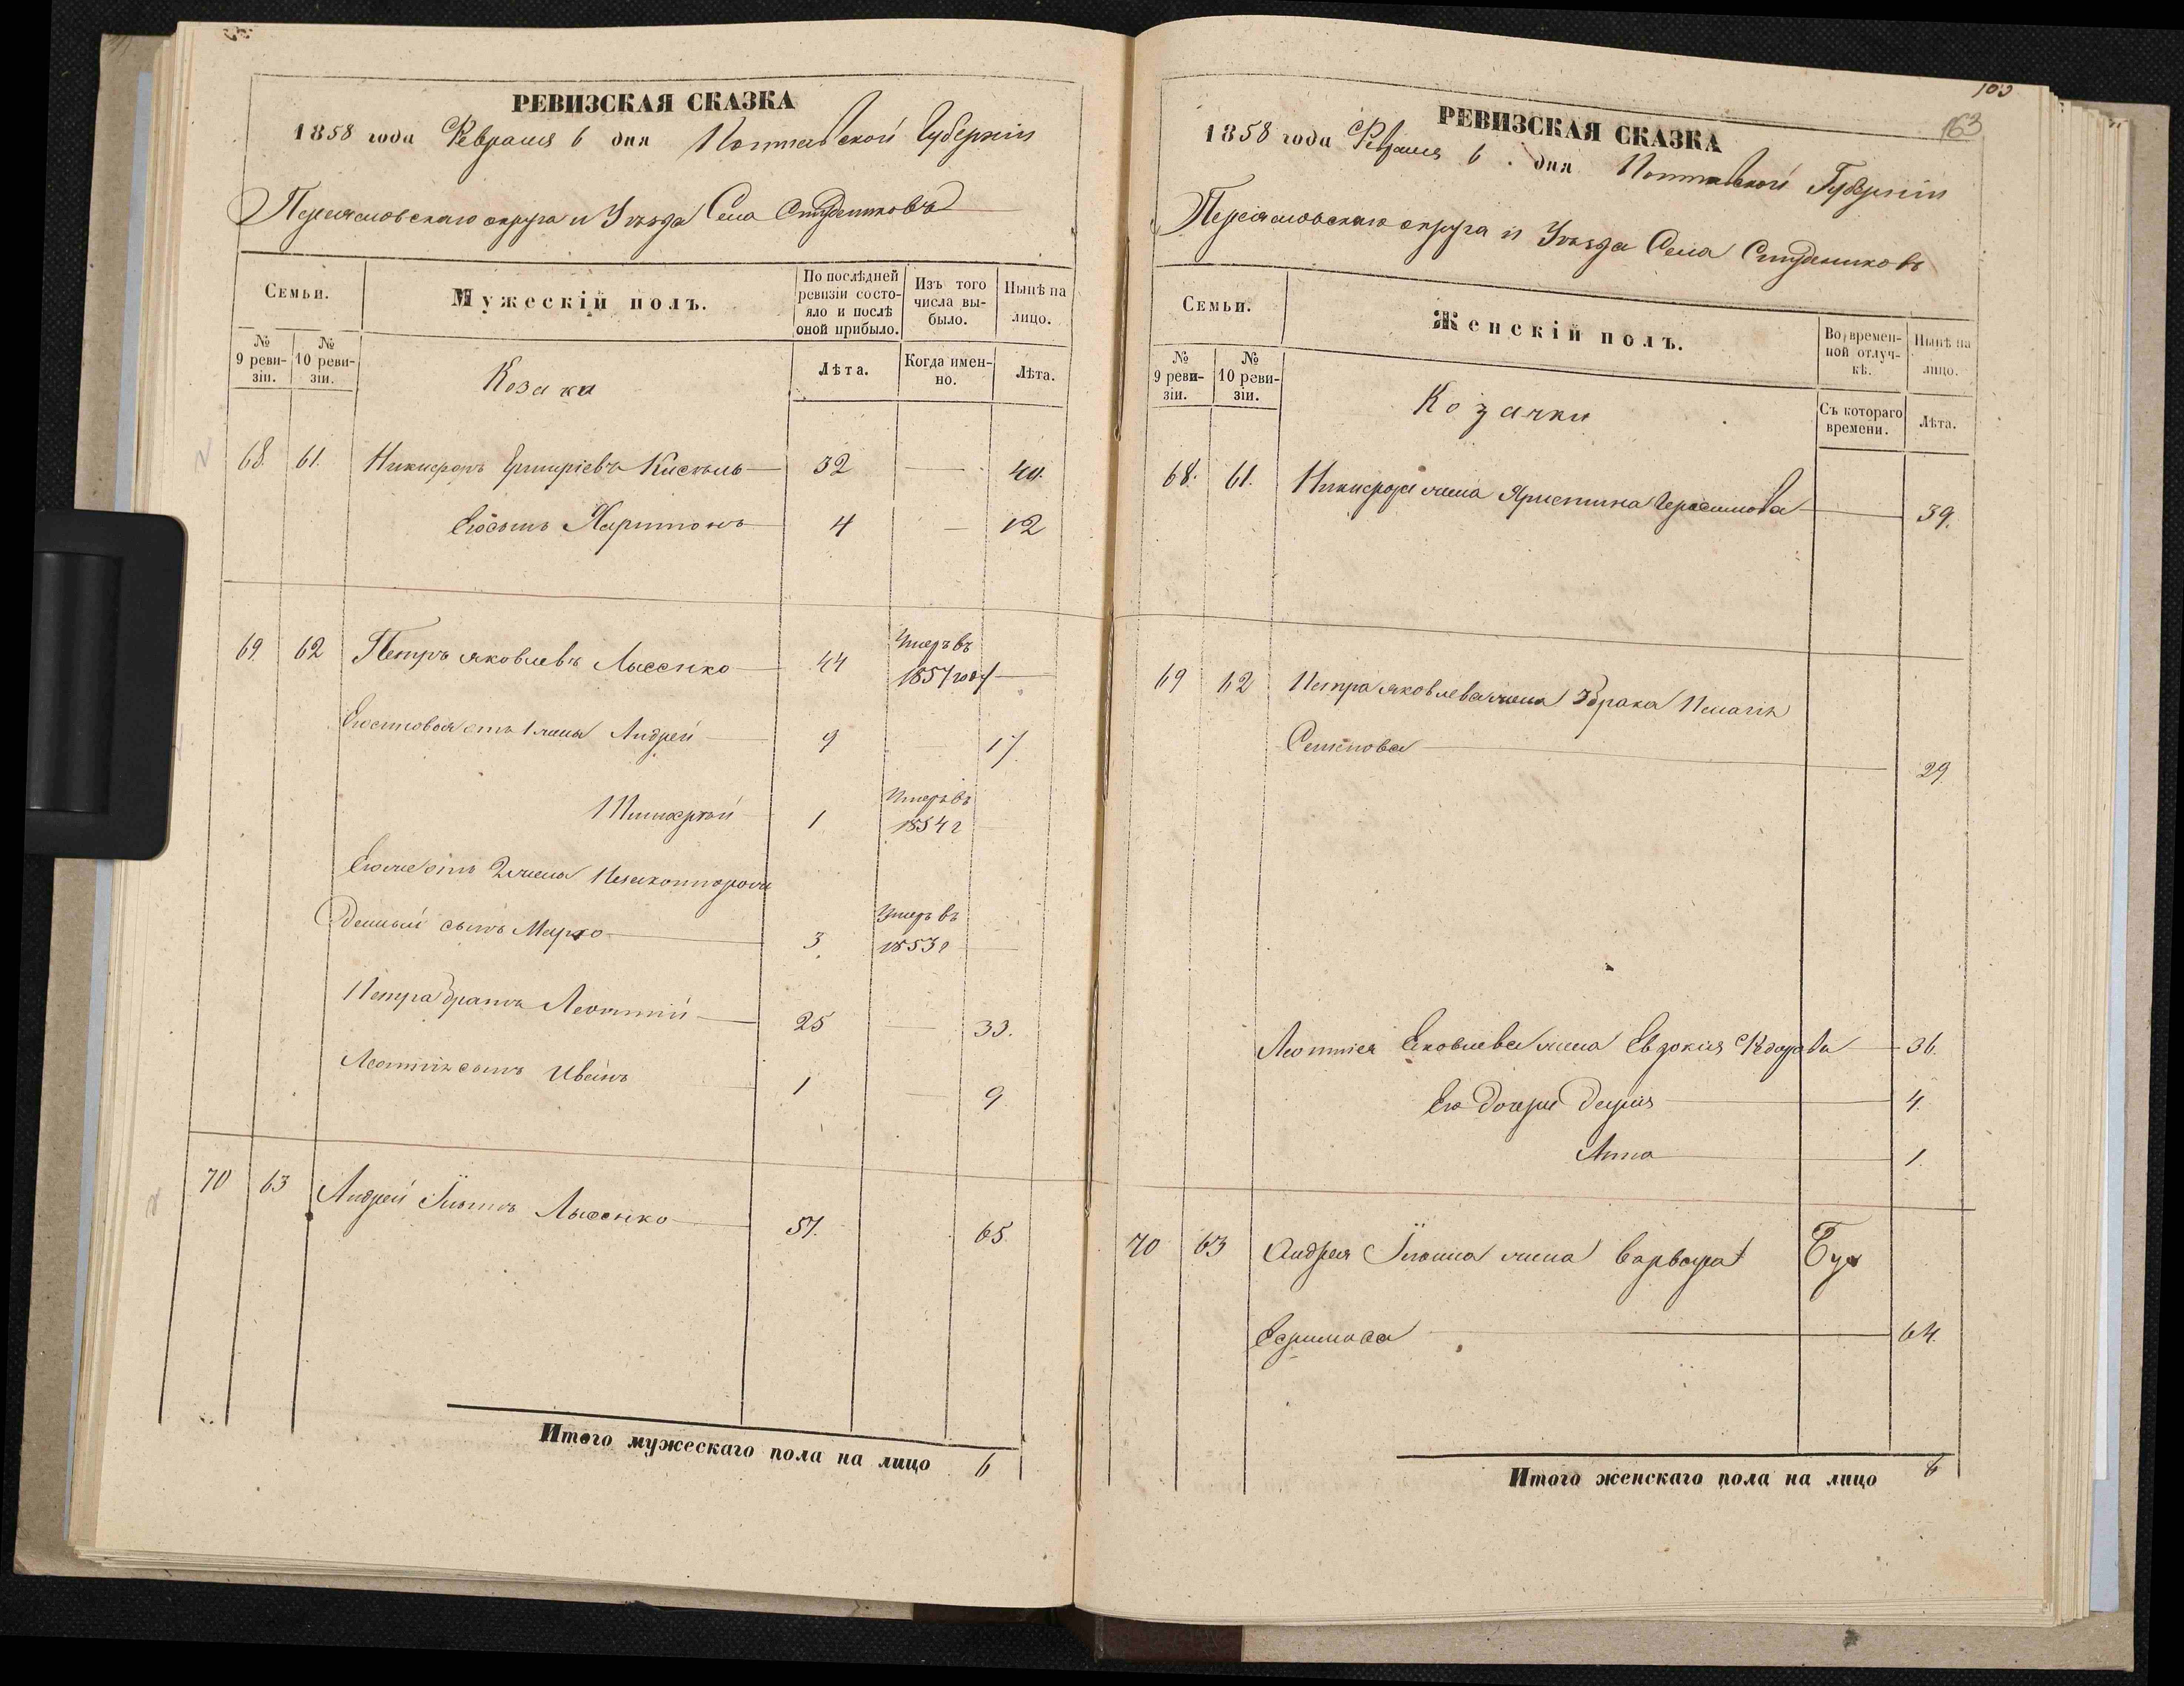 РЕВИЗСКАЯ СКАЗКА
1858 года Февраля 6 дня Полтавской Губернiи
Переяславскаго округа и Уѣзда Села Студениковъ
Семьи.
Мужескій полъ.
По послѣдней ревизіи состояло и послѣ оной прибыло.
Изъ того числа выбыло.
Нынѣ на лицо.
№ 9 ревизіи.
№ 10 ревизіи.
Козаки
Лѣта.
Когда именно.
Лѣта.
68. 61. Никифоръ Григріевъ Кисѣль 32 — 40.
Его сынъ Харитонъ 4 — 12
69. 62 Петръ Яковлевъ Лысенко 44 Умеръ въ 1857 году —
Его сыновья отъ 1 жены Андрей 9 — 17.
Тимофѣй 1 Умеръ въ 1854 г —
Его же отъ 2 жены Незаконнорож
денный сынъ Марко 3. Умеръ въ 1853 г —
Петра братъ Леонтій 25 — 33.
Леонтія сынъ Иванъ 1 — 9
70 63 Андрей Ильинъ Лысенко 57. 65.
Итого мужескаго пола на лицо 6
163
РЕВИЗСКАЯ СКАЗКА
1858 года Февраля 6 дня Полтавской Губерніи
Переяславскаго округа и Уѣзда Села Студениковъ
Семьи.
Женскій полъ.
Во временной отлучкѣ.
Нынѣ на лицо.
№ 9 ревизіи.
№ 10 ревизіи.
Козачки
Съ котораго времени.
Лѣта.
68. 61. Никифора жена Христина Герасимова — 39.
69 62 Петра Яковлева жена 2 брака Пелагія
Семенова — 29
Леонтія Яковлева жена Евдокія Федорова 36.
Его дочери Дарія — 4.
Анна — 1.
70 63 Андрея Ильина жена Варвара
Ефимова — 64.
Итого женскаго пола на лицо 6